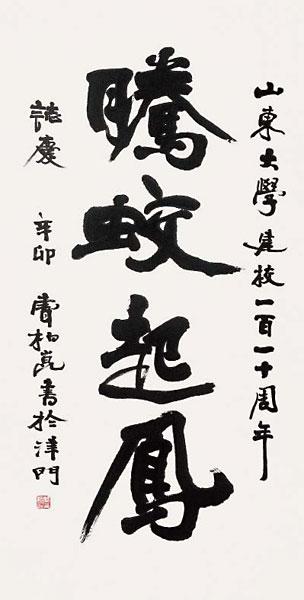 山東大學建校一百一十周年
騰蛟起鳳
誌慶 辛卯 曹柏崑書於津門